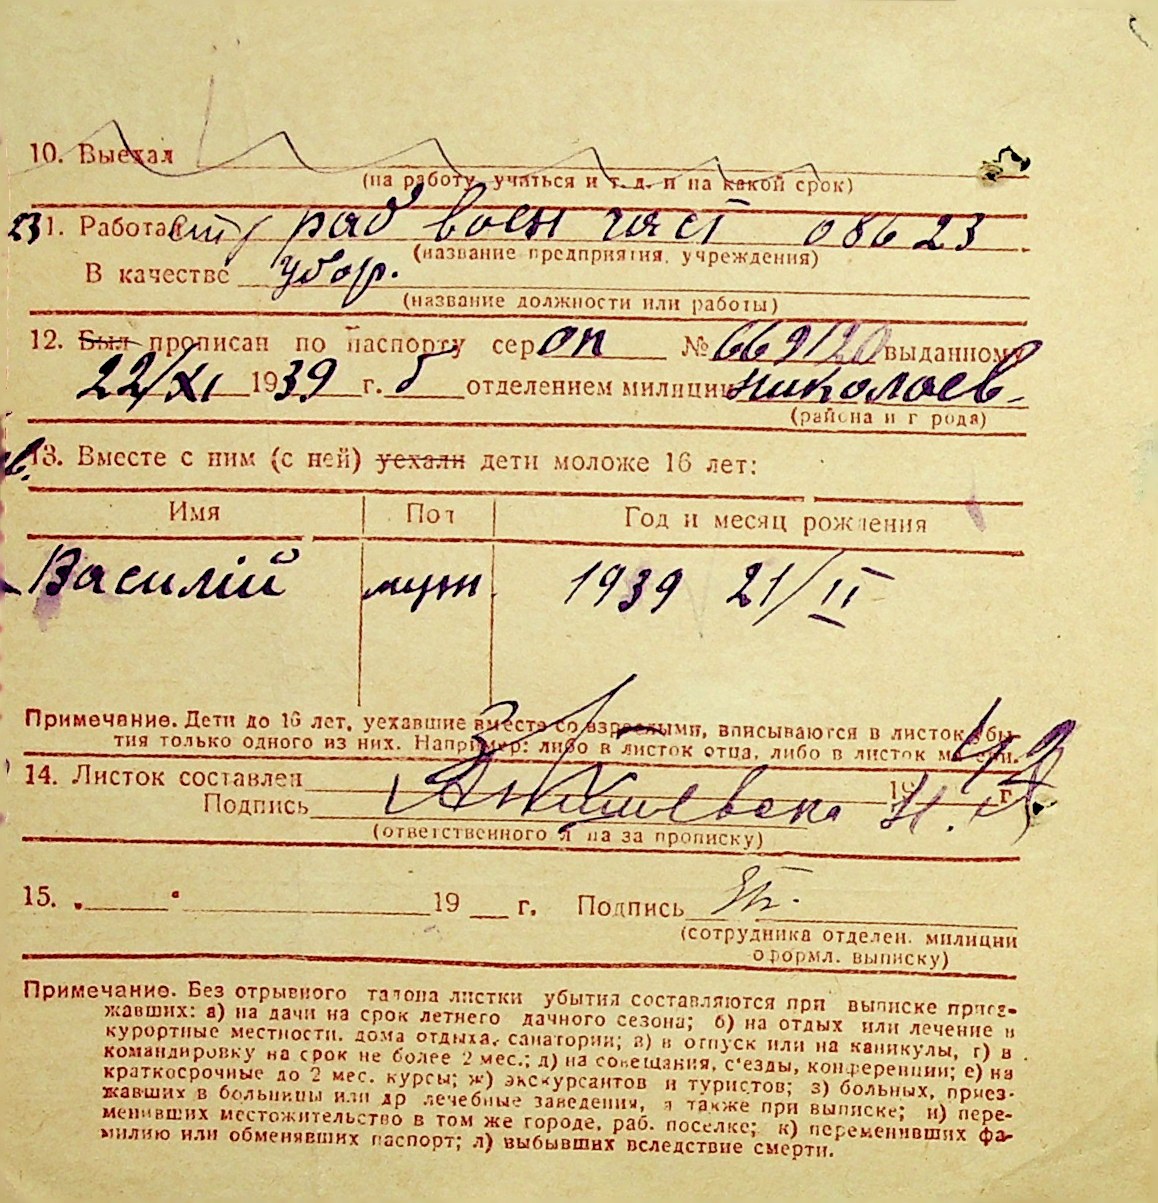 10. Выехал
(на работу, учиться и т. д. и на какой срок)
11. Работал раб воен част 08623
(название предприятия, учреждения)
В качестве убор.
(название должности или работы)
12. Был прописан по паспорту сер ОП № 669120 выданному
22/XI 1939 г. 5 отделением милиции Николаев
(района и города)
13. Вместе с ним (с ней) уехали дети моложе 16 лет:
Имя Пол Год и месяц рождения
Василий муж 1939 21/II
Примечание. Дети до 16 лет, уехавшие вместе со взрослыми, вписываются в листок убы-
тия только одного из них. Например: либо в листок отца, либо в листок матери.
14. Листок составлен 19 г.
Подпись
(ответственного лица за прописку)
15. „ “ 19 г. Подпись
(сотрудника отделен. милиции
оформл. выписку)
Примечание. Без отрывного талона листки убытия составляются при выписке приез-
жавших: а) на дачи на срок летнего дачного сезона; б) на отдых или лечение в
курортные местности, дома отдыха, санатории; в) в отпуск или на каникулы, г) в
командировку на срок не более 2 мес.; д) на совещания, с'езды, конференции; е) на
краткосрочные до 2 мес. курсы; ж) экскурсантов и туристов; з) больных, приез-
жавших в больницы или др лечебные заведения, а также при выписке; и) пере-
менивших местожительство в том же городе, раб. поселке; к) переменивших фа-
милию или обменявших паспорт; л) выбывших вследствие смерти.